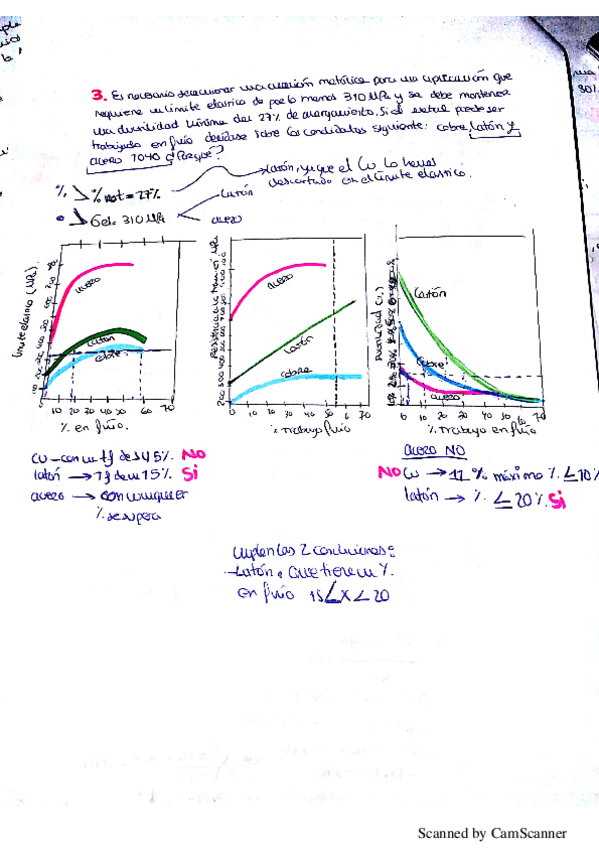 3. Es necesario seleccionar una aleación metálica para una aplicación que
requiere un límite elástico de por lo menos 310 MPa y se debe mantener
una ductilidad mínima del 27% de alargamiento. Si el metal puede ser
trabajado en frío decídase sobre los candidatos siguiente: cobre, latón y
acero 1040 ¿Porqué?
latón, ya que el Cu lo hemos
descartado con el límite elástico.
% = 27%
latón
310 MPa
acero
Límite elástico (MPa)
acero
latón
cobre
10 20 30 40 50 60 70
% en frío.
acero
latón
cobre
0 10 20 30 40 50 60 70
% trabajo frío
Ductilidad (%)
latón
cobre
acero
0 10 20 30 40 50 60 70
% Trabajo en frío
Cu - con un tf de 45% NO
latón → tf de un 15% Si
acero → con cualquier
% se supera
acero NO
NO Cu → 11 % máximo % ∠ 10%
latón → % ∠ 20% Si
cumplen las 2 condiciones:
- Latón: que tiene un %
en frío 15 ∠ X ∠ 20
Scanned by CamScanner